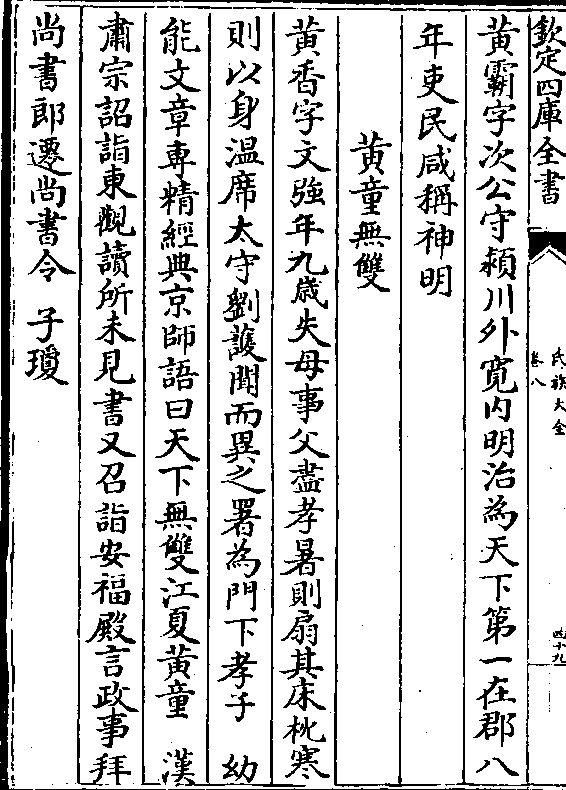 欽定四庫全書
氏族大全
卷八
四十九
黃霸字次公守潁川外寛内明治為天下第一在郡八
年吏民咸稱神明
黄童無雙
黃香字文強年九歳失母事父盡孝暑則扇其床枕寒
則以身溫席太守劉䕶聞而異之署為門下孝子 幼
能文章專精經典京師語曰天下無雙江夏黃童 漢
肅宗詔詣東觀讀所未見書又召詣安福殿言政事拜
尚書郎遷尚書令 子瓊